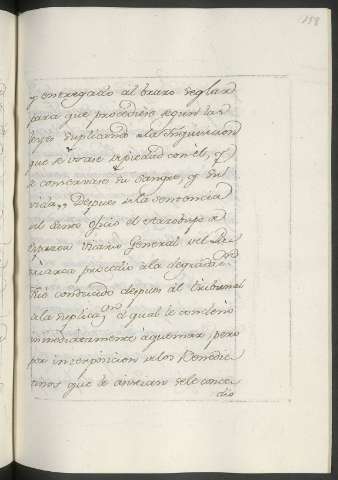 158
y entregallo al brazo seglar
para que procediese segun las
leyes suplicando a la Inquisicion
que se usase de piedad con el, y
se conservase su sangre, y su
vida,, Despues de la sentencia
del Santo Oficio el
Vicario General del
procedio a la degradac.on
fue conducido despues al tribunal
de la suplica,, el qual le condeno
inmediatamente a quemar, pero
por interposicion de los Benedic
tinos que le asistian se le conce
dio